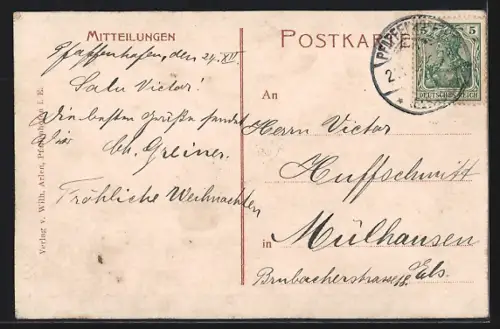 MITTEILUNGEN
Pfaffenhofen, den 21. XII.
Salu Victor!
Die besten Grüße sendet
Dir
Ch. Greiner.
Fröhliche Weihnachten
Verlag v. Wilh. Arlen, Pfaffenhofen i. E.
POSTKARTE
5 5
DEUTSCHES REICH
An
Herrn Victor
Huffschmitt
in Mülhausen
Brubacherstrasse 18. Els.